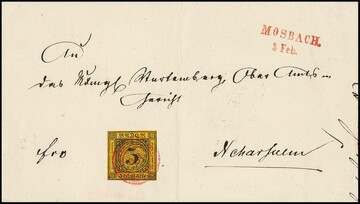 MOSBACH.
3 Feb.
An
das Königl Wurtemberg. Ober Amts=
Gericht
fro
Neckarsulm
BADEN
3